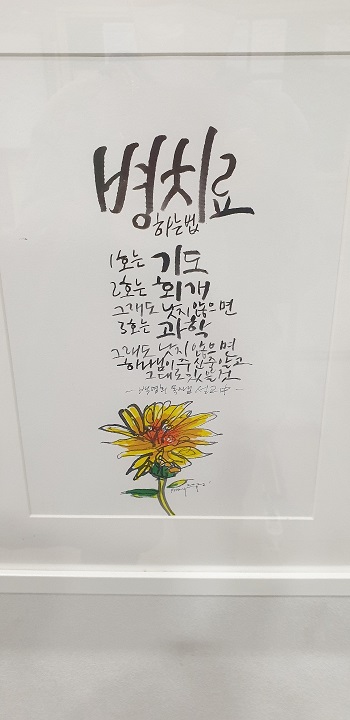 병치료
하는법
1호는 기도
2호는 회개
그래도 낫지 않으면
3호는 과학
그래도 낫지 않으면
하나님이 주신 줄 알고
그대로 갖 불것
- 백영희 목사님 설교 中 -